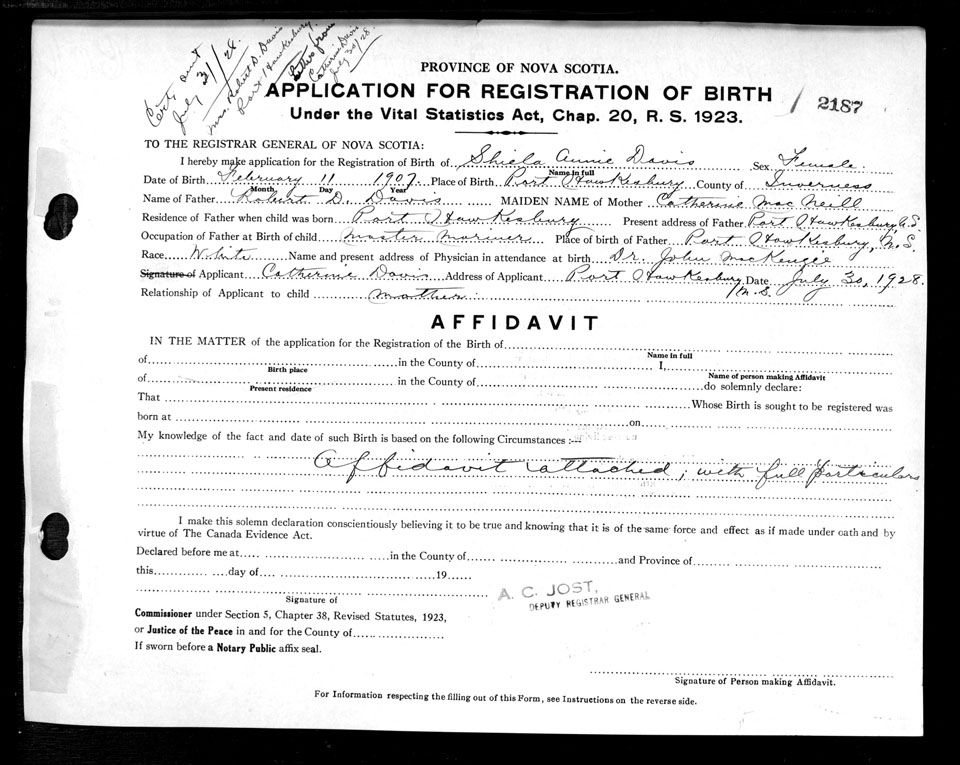 Cert, sent
July 31/28.
Mrs. Robert D. Davis
Port Hawkesbury.
Letter from
Catherine Davis
July 30/28
PROVINCE OF NOVA SCOTIA.
APPLICATION FOR REGISTRATION OF BIRTH
2187
Under the Vital Statistics Act, Chap. 20, R. S. 1923.
TO THE REGISTRAR GENERAL OF NOVA SCOTIA:
I hereby make application for the Registration of Birth of Shiela Annie Davis Sex Female.
Name in full
Date of Birth February 11 1907. Place of Birth Port Hawkesbury County of Inverness
Month Day Year
Name of Father Robert D. Davis MAIDEN NAME of Mother Catherine MacNeill
Residence of Father when child was born Port Hawkesbury Present address of Father Port Hawkesbury, N.S.
Occupation of Father at Birth of child Master Mariner Place of birth of Father Port Hawkesbury, N.S.
Race White Name and present address of Physician in attendance at birth Dr. John MacKenzie
Signature of Applicant Catherine Davis Address of Applicant Port Hawkesbury Date July 30, 1928.
N.S.
Relationship of Applicant to child Mother.
AFFIDAVIT
IN THE MATTER of the application for the Registration of the Birth of
Name in full
of in the County of I,
Birth place Name of person making Affidavit
of in the County of do solemnly declare:
Present residence
That Whose Birth is sought to be registered was
born at on
My knowledge of the fact and date of such Birth is based on the following Circumstances :—
Affidavit attached; with full particulars
I make this solemn declaration conscientiously believing it to be true and knowing that it is of the same force and effect as if made under oath and by
virtue of The Canada Evidence Act.
Declared before me at in the County of and Province of
this day of 19
A. C. JOST,
DEPUTY REGISTRAR GENERAL
Signature of
Commissioner under Section 5, Chapter 38, Revised Statutes, 1923,
or Justice of the Peace in and for the County of
If sworn before a Notary Public affix seal.
Signature of Person making Affidavit.
For Information respecting the filling out of this Form, see Instructions on the reverse side.